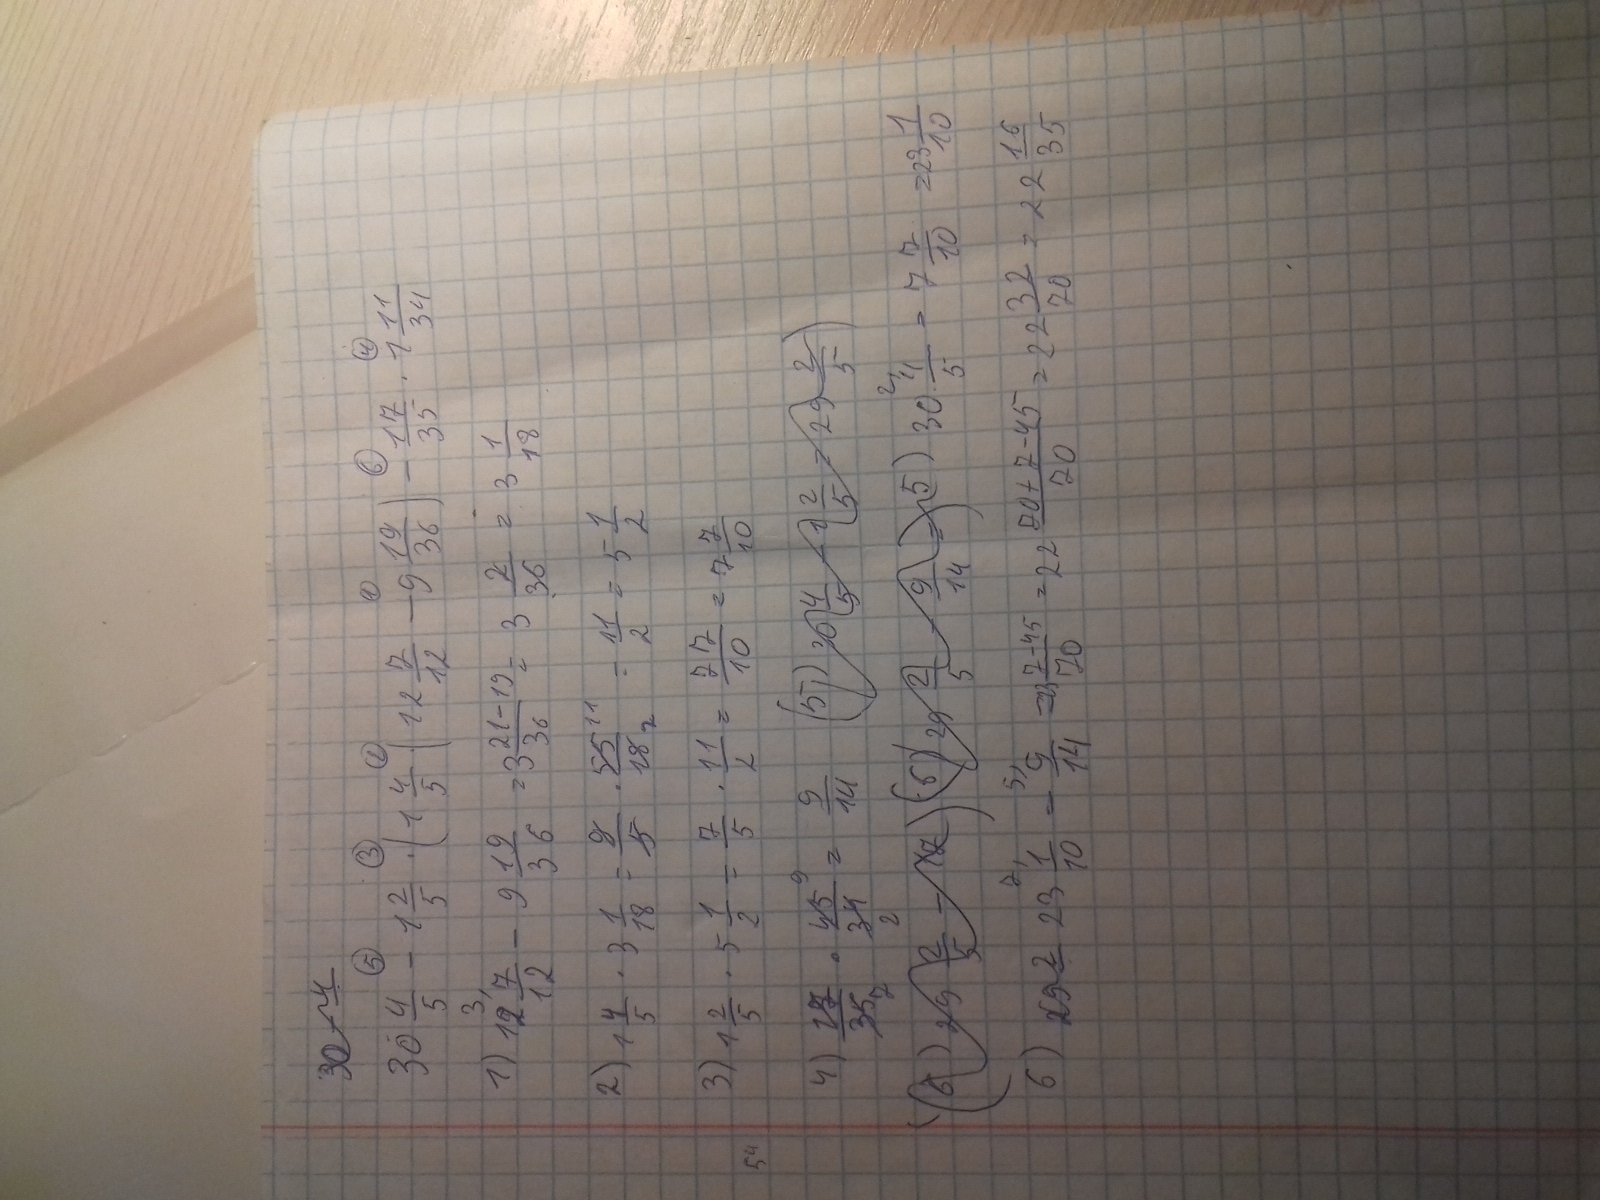 30 4/5 - 1 2/5 · (1 4/5 · (12 7/12 - 9 19/36)) - 17/35 · 1 11/34
1) 12 7/12 - 9 19/36 = 3 (21-19)/36 = 3 2/36 = 3 1/18
2) 1 4/5 · 3 1/18 = 9/5 · 55/18 = 11/2 = 5 1/2
3) 1 2/5 · 5 1/2 = 7/5 · 11/2 = 77/10 = 7 7/10
4) 17/35 · 45/34 = 9/14
5) 30 4/5 - 7 7/10 = 23 1/10
6) 23 1/10 - 9/14 = 23 (7-45)/70 = 22 (70+7-45)/70 = 22 32/70 = 22 16/35
54